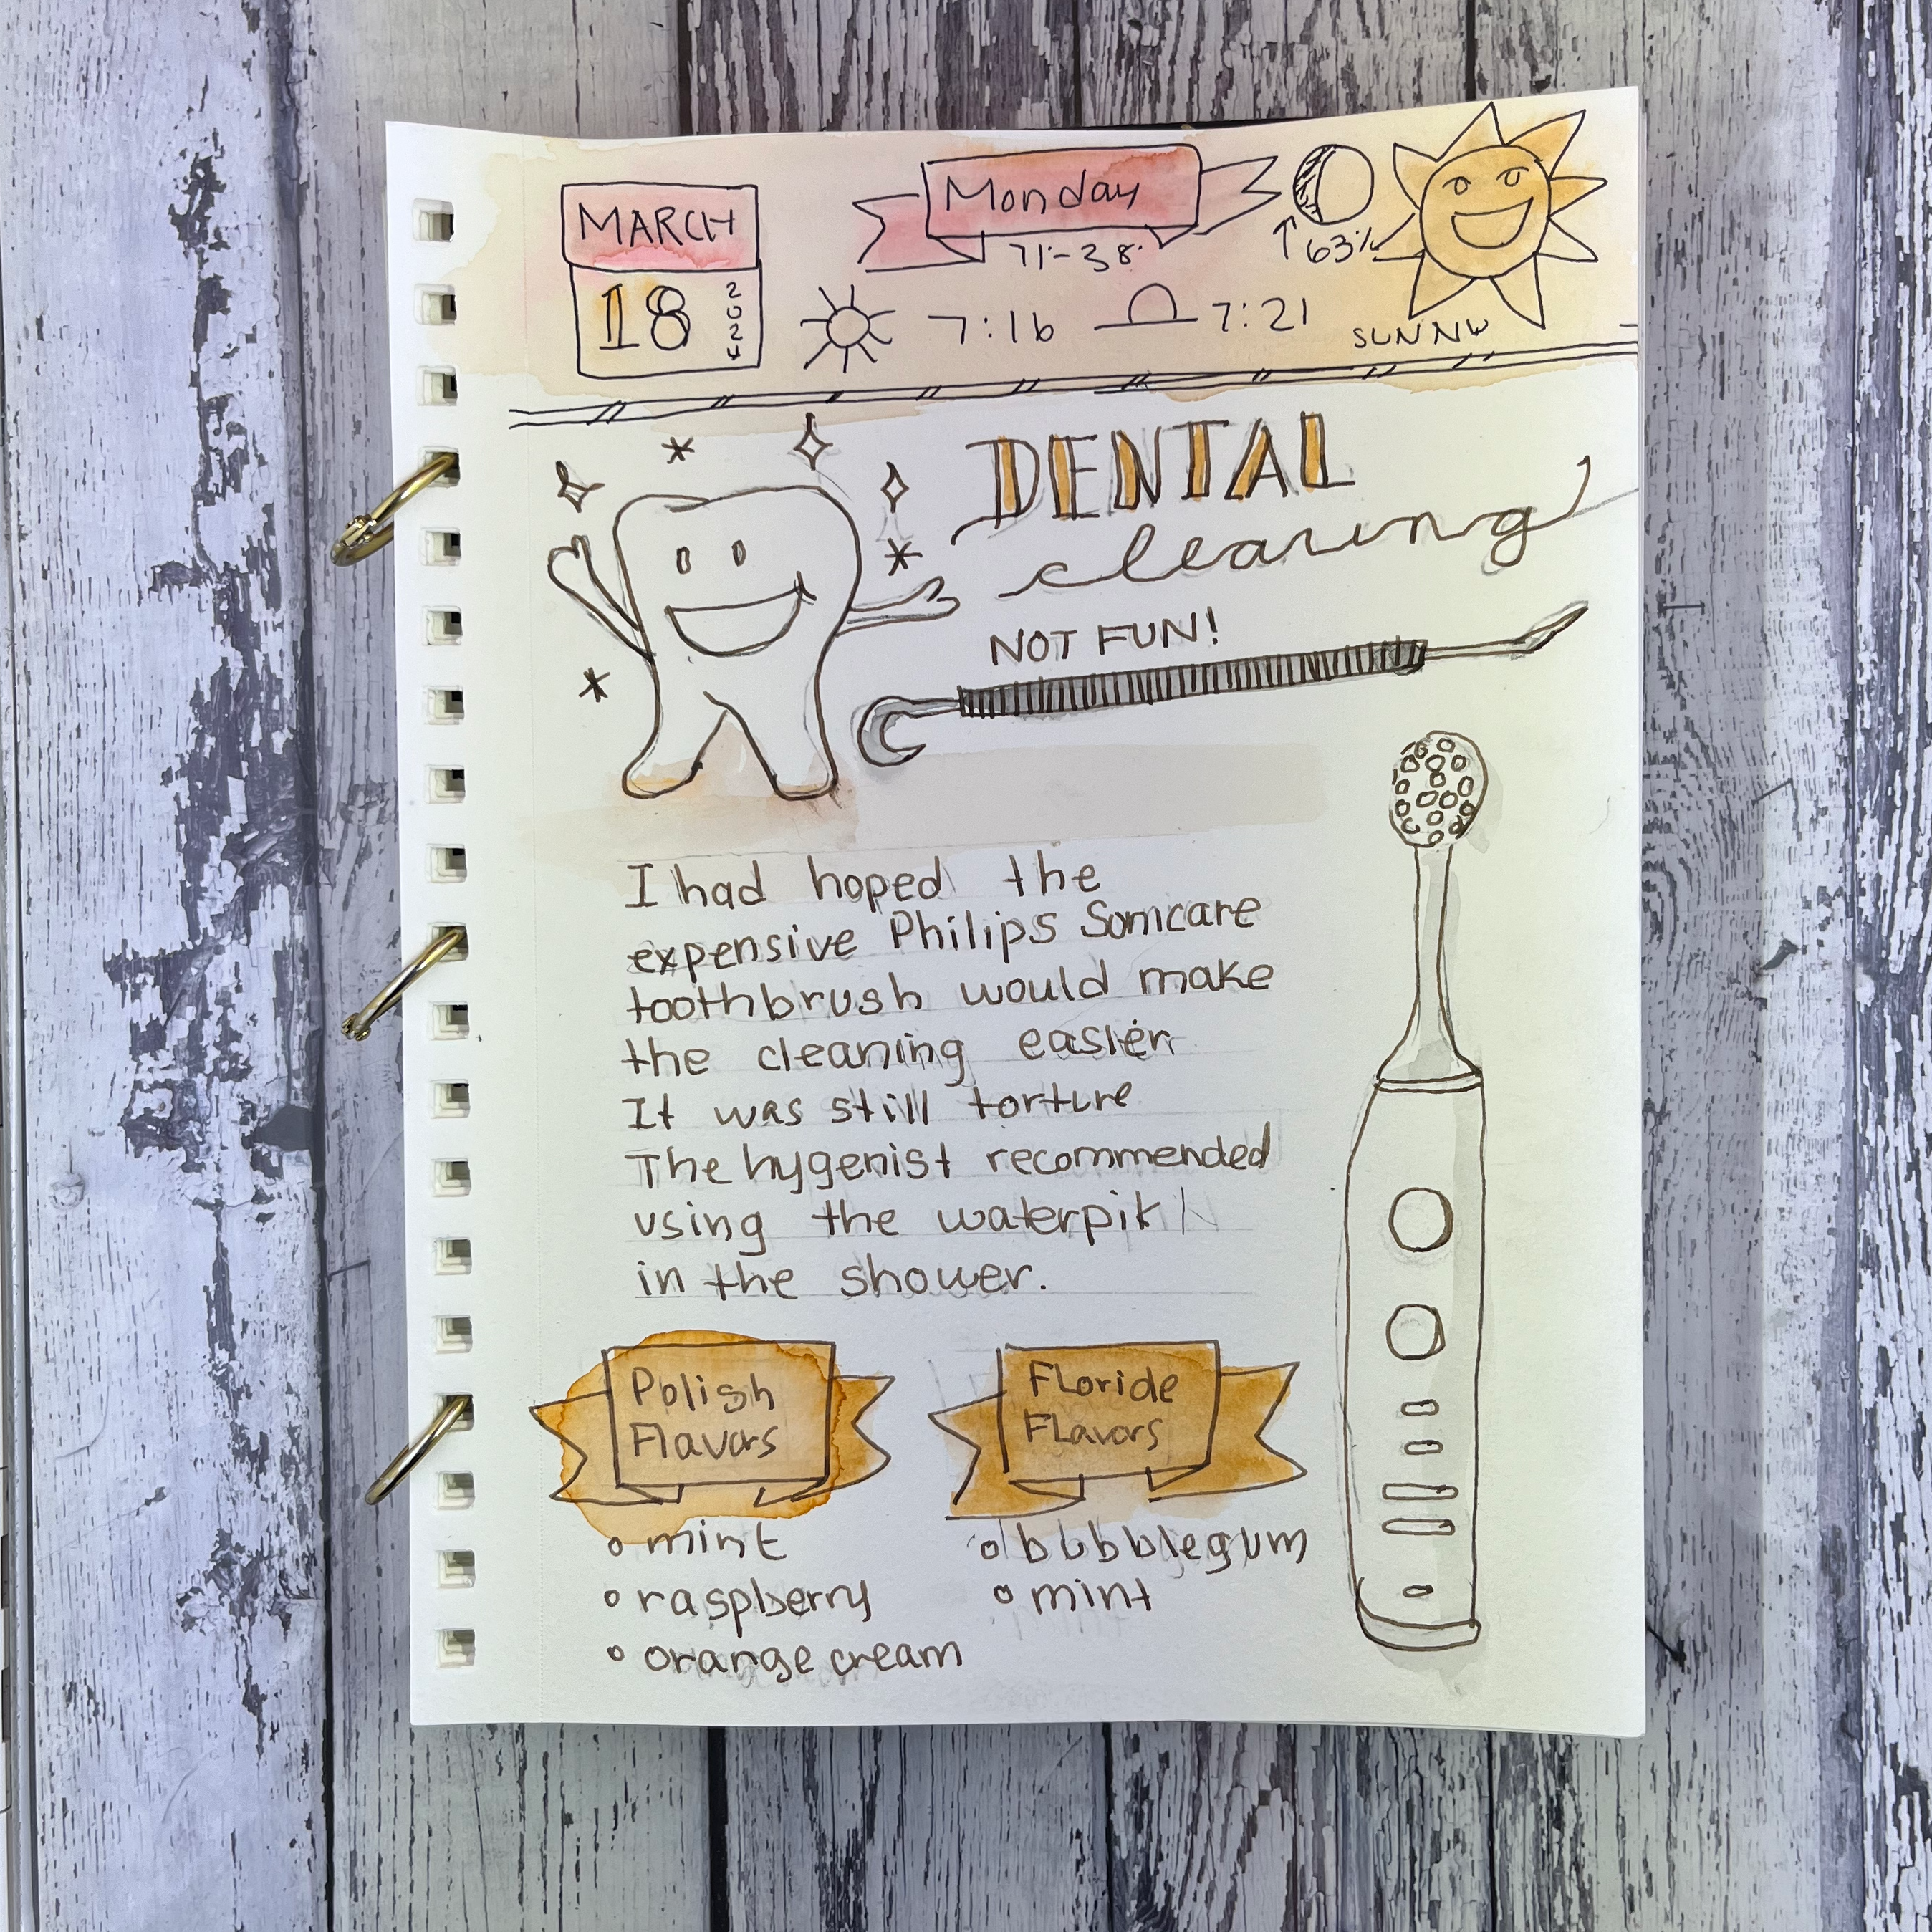 MARCH
18
2024
Monday
71°-38°
↑63%
7:16
7:21
SUNNY
DENTAL
cleaning
NOT FUN!
I had hoped the
expensive Philips Sonicare
toothbrush would make
the cleaning easier
It was still torture
The hygenist recommended
using the waterpik
in the shower.
Polish
Flavors
• mint
• raspberry
• orange cream
Floride
FLavors
• bubblegum
• mint